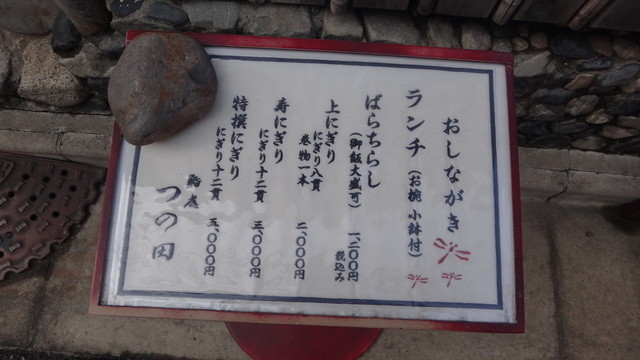 おしながき
ランチ（お椀 小鉢付）
ばらちらし
（御飯大盛可） 一、二〇〇円
税込み
上にぎり
にぎり八貫
巻物一本 二、〇〇〇円
寿にぎり
にぎり十二貫 三、〇〇〇円
特撰にぎり
にぎり十二貫 五、〇〇〇円
鮨處
つの田